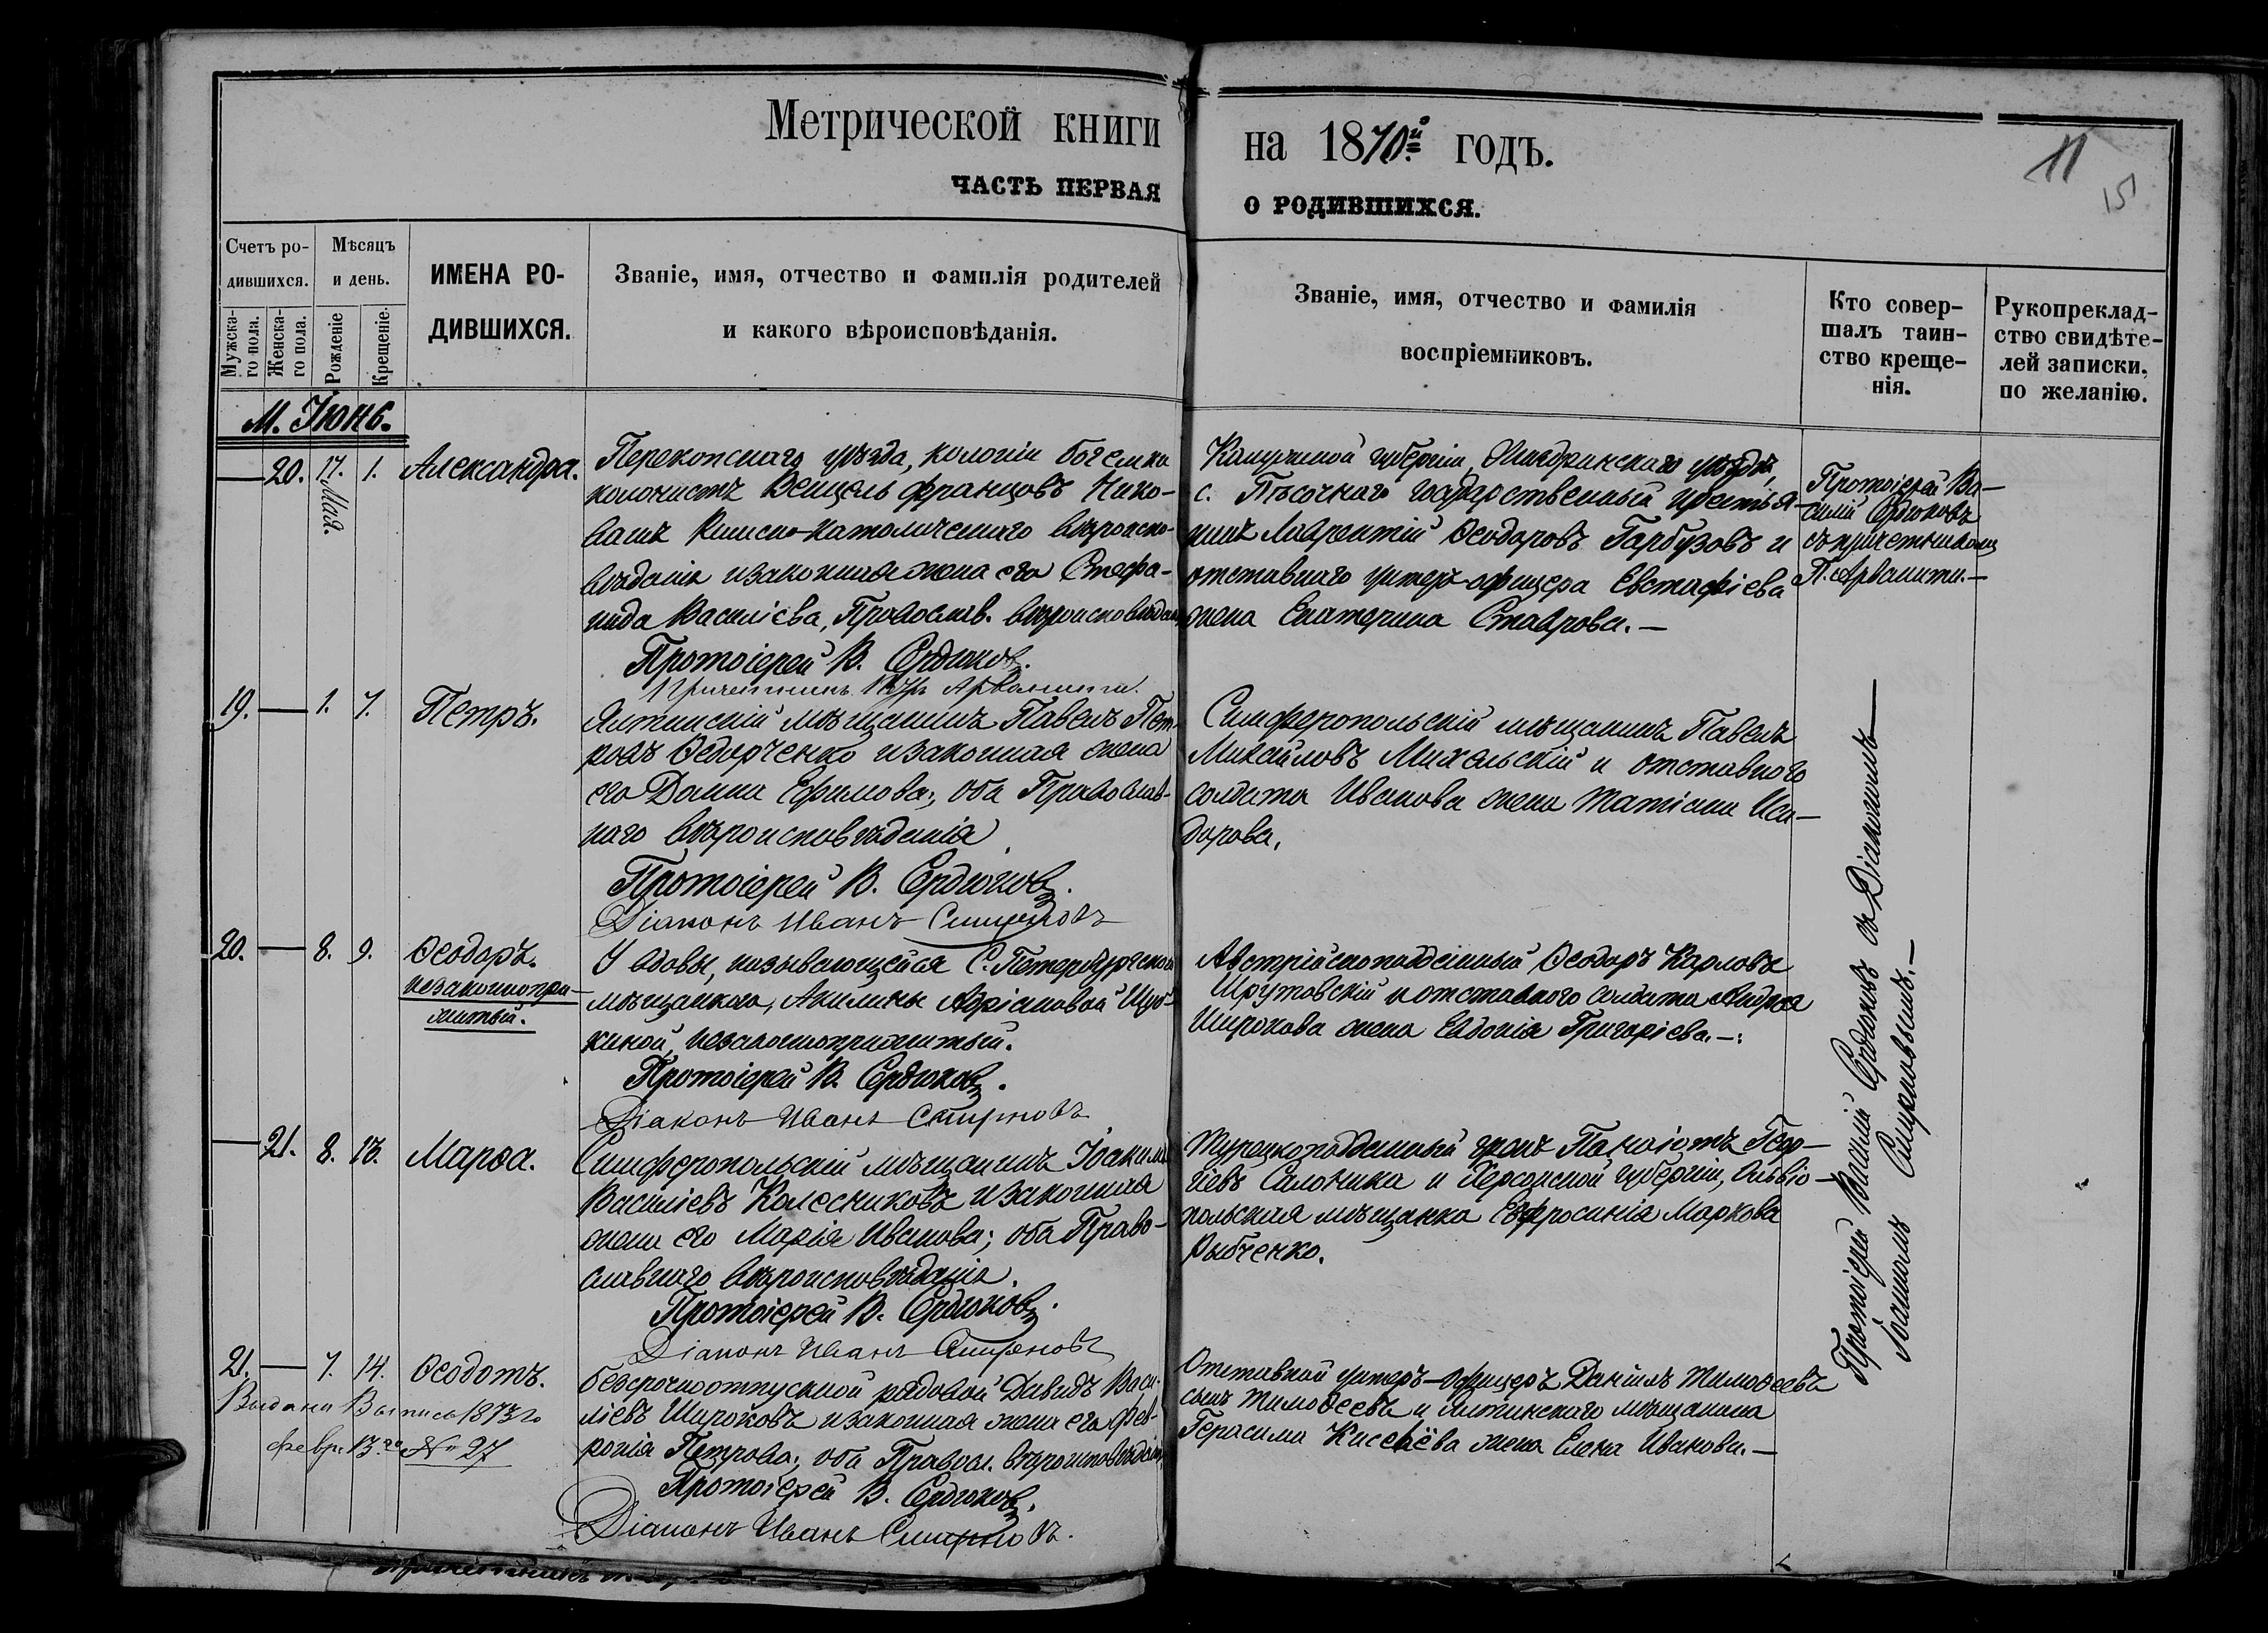 Метрической книги на 1870й годъ.
11
15
ЧАСТЬ ПЕРВАЯ О РОДИВШИХСЯ.
Счетъ ро-
дившихся.
Мужска-
го пола.
Женска-
го пола.
Мѣсяцъ
и день.
Рожденіе
Крещеніе.
ИМЕНА РО-
ДИВШИХСЯ.
Званіе, имя, отчество и фамилія родителей
и какого вѣроисповѣданія.
Званіе, имя, отчество и фамилія
воспріемниковъ.
Кто совер-
шалъ таин-
ство креще-
нія.
Рукоприклад-
ство свидѣте-
лей записки,
по желанію.
М. Іюнь.
— 20. 17. Мая. 1. Александра.
Перекопскаго уѣзда, колоніи богемка
колонистъ Венцель Францовъ Нико-
вашъ Римско-католическаго вѣроиспо-
вѣданія и законная жена его Стефа-
нида Василіева, Православ. вѣроисповѣданія
Протоіерей В. Сердюковъ.
Причетникъ Петръ Арванити.
губерніи, уѣзда,
с. Пѣсочнаго государственный крестья-
нинъ Лаврентій Ѳеодоровъ Гарбузовъ и
отставнаго унтеръ-офицера Евстафіева
жена Екатерина Ставрова. —
Протоіерей Ва-
силій Сердюковъ
съ причетникомъ
П. Арванити. —
19. — 1. 7. Петръ.
Ялтинскій мѣщанинъ Павелъ Пет-
ровъ Ѳедорченко и законная жена
его Домна Ефимова; оба Православ-
наго вѣроисповѣданія
Протоіерей В. Сердюковъ.
Діаконъ Иванъ Смирновъ
Симферопольскій мѣщанинъ Павелъ
Михайловъ Михальскій и отставнаго
солдата Иванова жена Татіана Иси-
дорова.
20. — 8. 9. Ѳеодоръ.
незаконнопри-
житый.
У вдовы, называющейся С. Петербургскою
мѣщанкою, Акилины Адріановой Щу-
киной, незаконноприжитый.
Протоіерей В. Сердюковъ.
Діаконъ Иванъ Смирновъ
Австрійскоподданный Ѳеодоръ Карловъ
Шрутовскій и отставнаго солдата Андрея
Широкова жена Евдокія Григоріева. —
— 21. 8. 13. Марѳа.
Симферопольскій мѣщанинъ Іоакимъ
Василіевъ Колесниковъ и законная
жена его Марія Иванова; оба Право-
славнаго вѣроисповѣданія.
Протоіерей В. Сердюковъ.
Діаконъ Иванъ Смирновъ
Турецкоподданный грекъ Панаіотъ Геор-
гіевъ Салоника и Херсонской губерніи, Ольвіо-
польская мѣщанка Евфросинія Маркова
Рыбченко.
21. — 7. 14. Ѳеодотъ.
Выдана Выпись 1873 го
февр. 13 го № 27
Безсрочноотпускной рядовой Давидъ Васи-
ліевъ Широковъ и законная жена его Фев-
ронія Петрова; оба Правосл. вѣроисповѣданія
Протоіерей В. Сердюковъ.
Діаконъ Иванъ Смирновъ.
Отставной унтеръ-офицеръ Даніилъ Тимоѳеевъ
сынъ Тимоѳеевъ и ялтинскаго мѣщанина
Герасима Киселёва жена Елена Иванова. —
Протоіерей Василій Сердюковъ съ Діакономъ —
Іоанномъ Смирновымъ. —